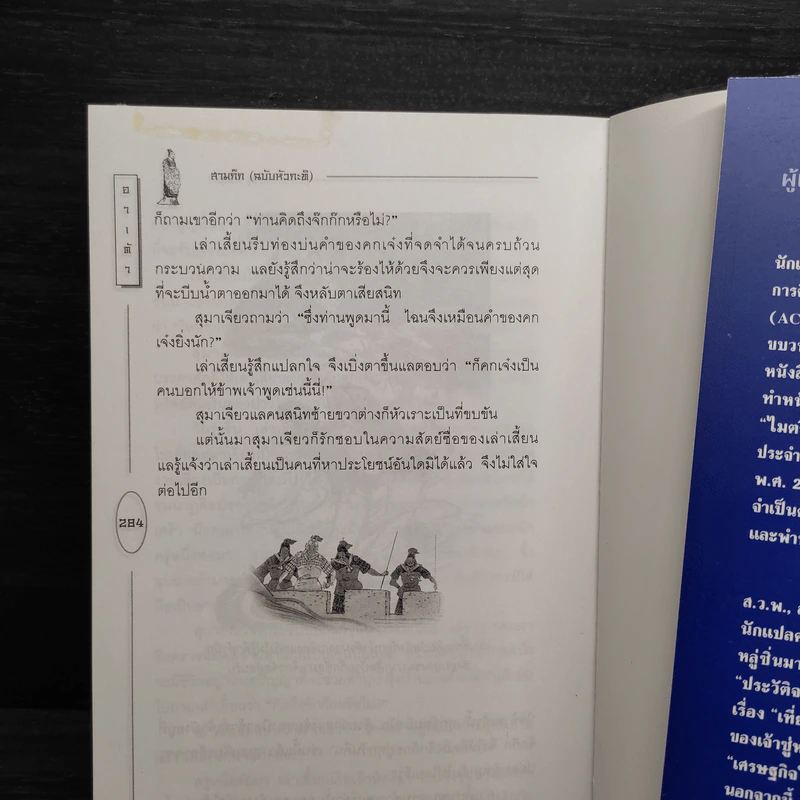 สามก๊ก (ฉบับหัวกะทิ)
อาเต๊า
ก็ถามเขาอีกว่า “ท่านคิดถึงจ๊กก๊กหรือไม่?”
เล่าเสี้ยนรีบท่องบ่นคำของคกเจ๋งที่จดจำได้จนครบถ้วน
กระบวนความ แลยังรู้สึกว่าน่าจะร้องไห้ด้วยจึงจะควรเพียงแต่สุด
ที่จะบีบน้ำตาออกมาได้ จึงหลับตาเสียสนิท
สุมาเจียวถามว่า “ซึ่งท่านพูดมานี้ ไฉนจึงเหมือนคำของคก
เจ๋งยิ่งนัก?”
เล่าเสี้ยนรู้สึกแปลกใจ จึงเบิ่งตาขึ้นแลตอบว่า “ก็คกเจ๋งเป็น
คนบอกให้ข้าพเจ้าพูดเช่นนี้นี่!”
สุมาเจียวแลคนสนิทซ้ายขวาต่างก็หัวเราะเป็นที่ขบขัน
แต่นั้นมาสุมาเจียวก็รักชอบในความสัตย์ซื่อของเล่าเสี้ยน
แลรู้แจ้งว่าเล่าเสี้ยนเป็นคนที่หาประโยชน์อันใดมิได้แล้ว จึงไม่ใส่ใจ
ต่อไปอีก
284
ผู้
นัก
การ
(AC
ขบว
หนังสื
ทำหน้
“ไมตรี
ประจำ
พ.ศ. 2
จำเป็น
และพำ
ส.ว.พ.,
นักแปล
หลู่ซิ่นมา
“ประวัติ
เรื่อง “เที่
ของเจ้าชู
“เศรษฐกิจ
นอกจากนี้